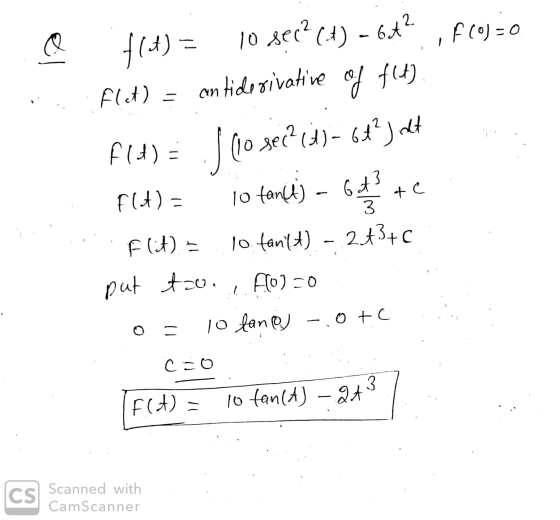 Q f(t) = 10 sec²(t) - 6t² , F(0)=0
F(t) = antiderivative of f(t)
F(t) = ∫(10 sec²(t) - 6t²) dt
F(t) = 10 tan(t) - 6 t³/3 + c
F(t) = 10 tan(t) - 2t³ + c
put t=0. , F(0)=0
0 = 10 tan(0) - 0 + c
c=0
F(t) = 10 tan(t) - 2t³
CS Scanned with
CamScanner